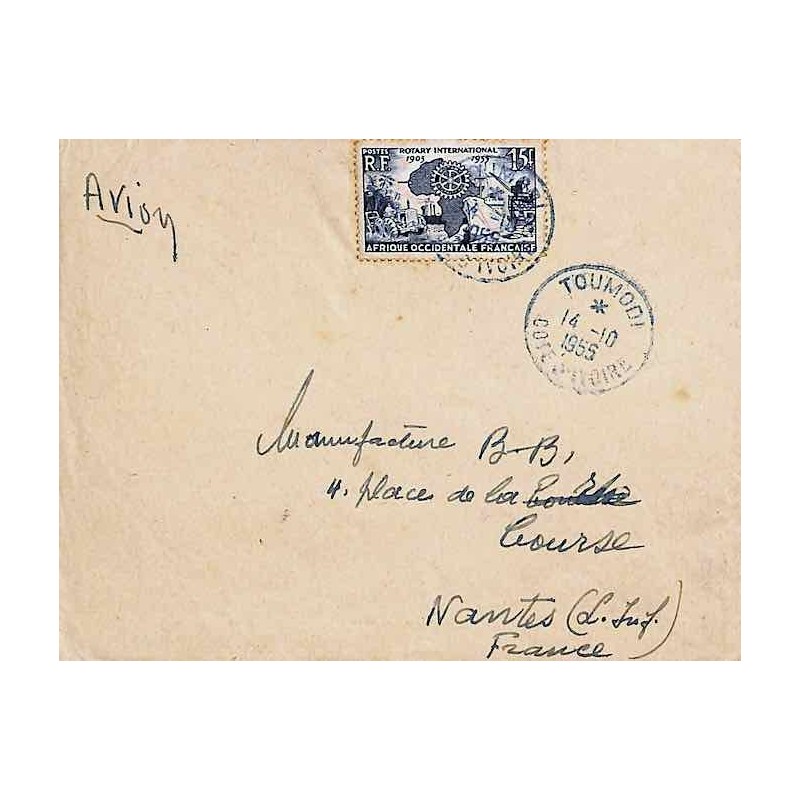 Avion
POSTES ROTARY INTERNATIONAL 15F
RF 1905 1955
AFRIQUE OCCIDENTALE FRANÇAISE
TOUMODI
14 -10
1955
COTE D'IVOIRE
Manufacture B-B,
4. place de la
Course
Nantes (L. Inf.)
France